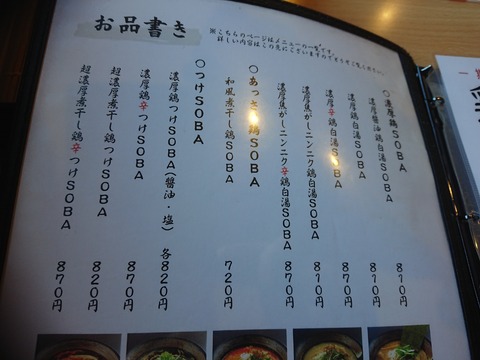 お品書き
※こちらのページはメニューの一覧です。
詳しい内容はこの先にございますのでそちらをご覧ください。
○濃厚鶏SOBA
濃厚醤油鶏白湯SOBA 810円
濃厚鶏白湯SOBA 810円
濃厚辛鶏白湯SOBA 870円
濃厚焦がしニンニク鶏白湯SOBA 810円
濃厚焦がしニンニク辛鶏白湯SOBA 870円
○あっさり鶏SOBA
和風煮干し鶏SOBA 720円
○つけSOBA
濃厚鶏つけSOBA(醤油・塩) 各820円
濃厚鶏辛つけSOBA 870円
超濃厚煮干し鶏つけSOBA 820円
超濃厚煮干し鶏辛つけSOBA 870円